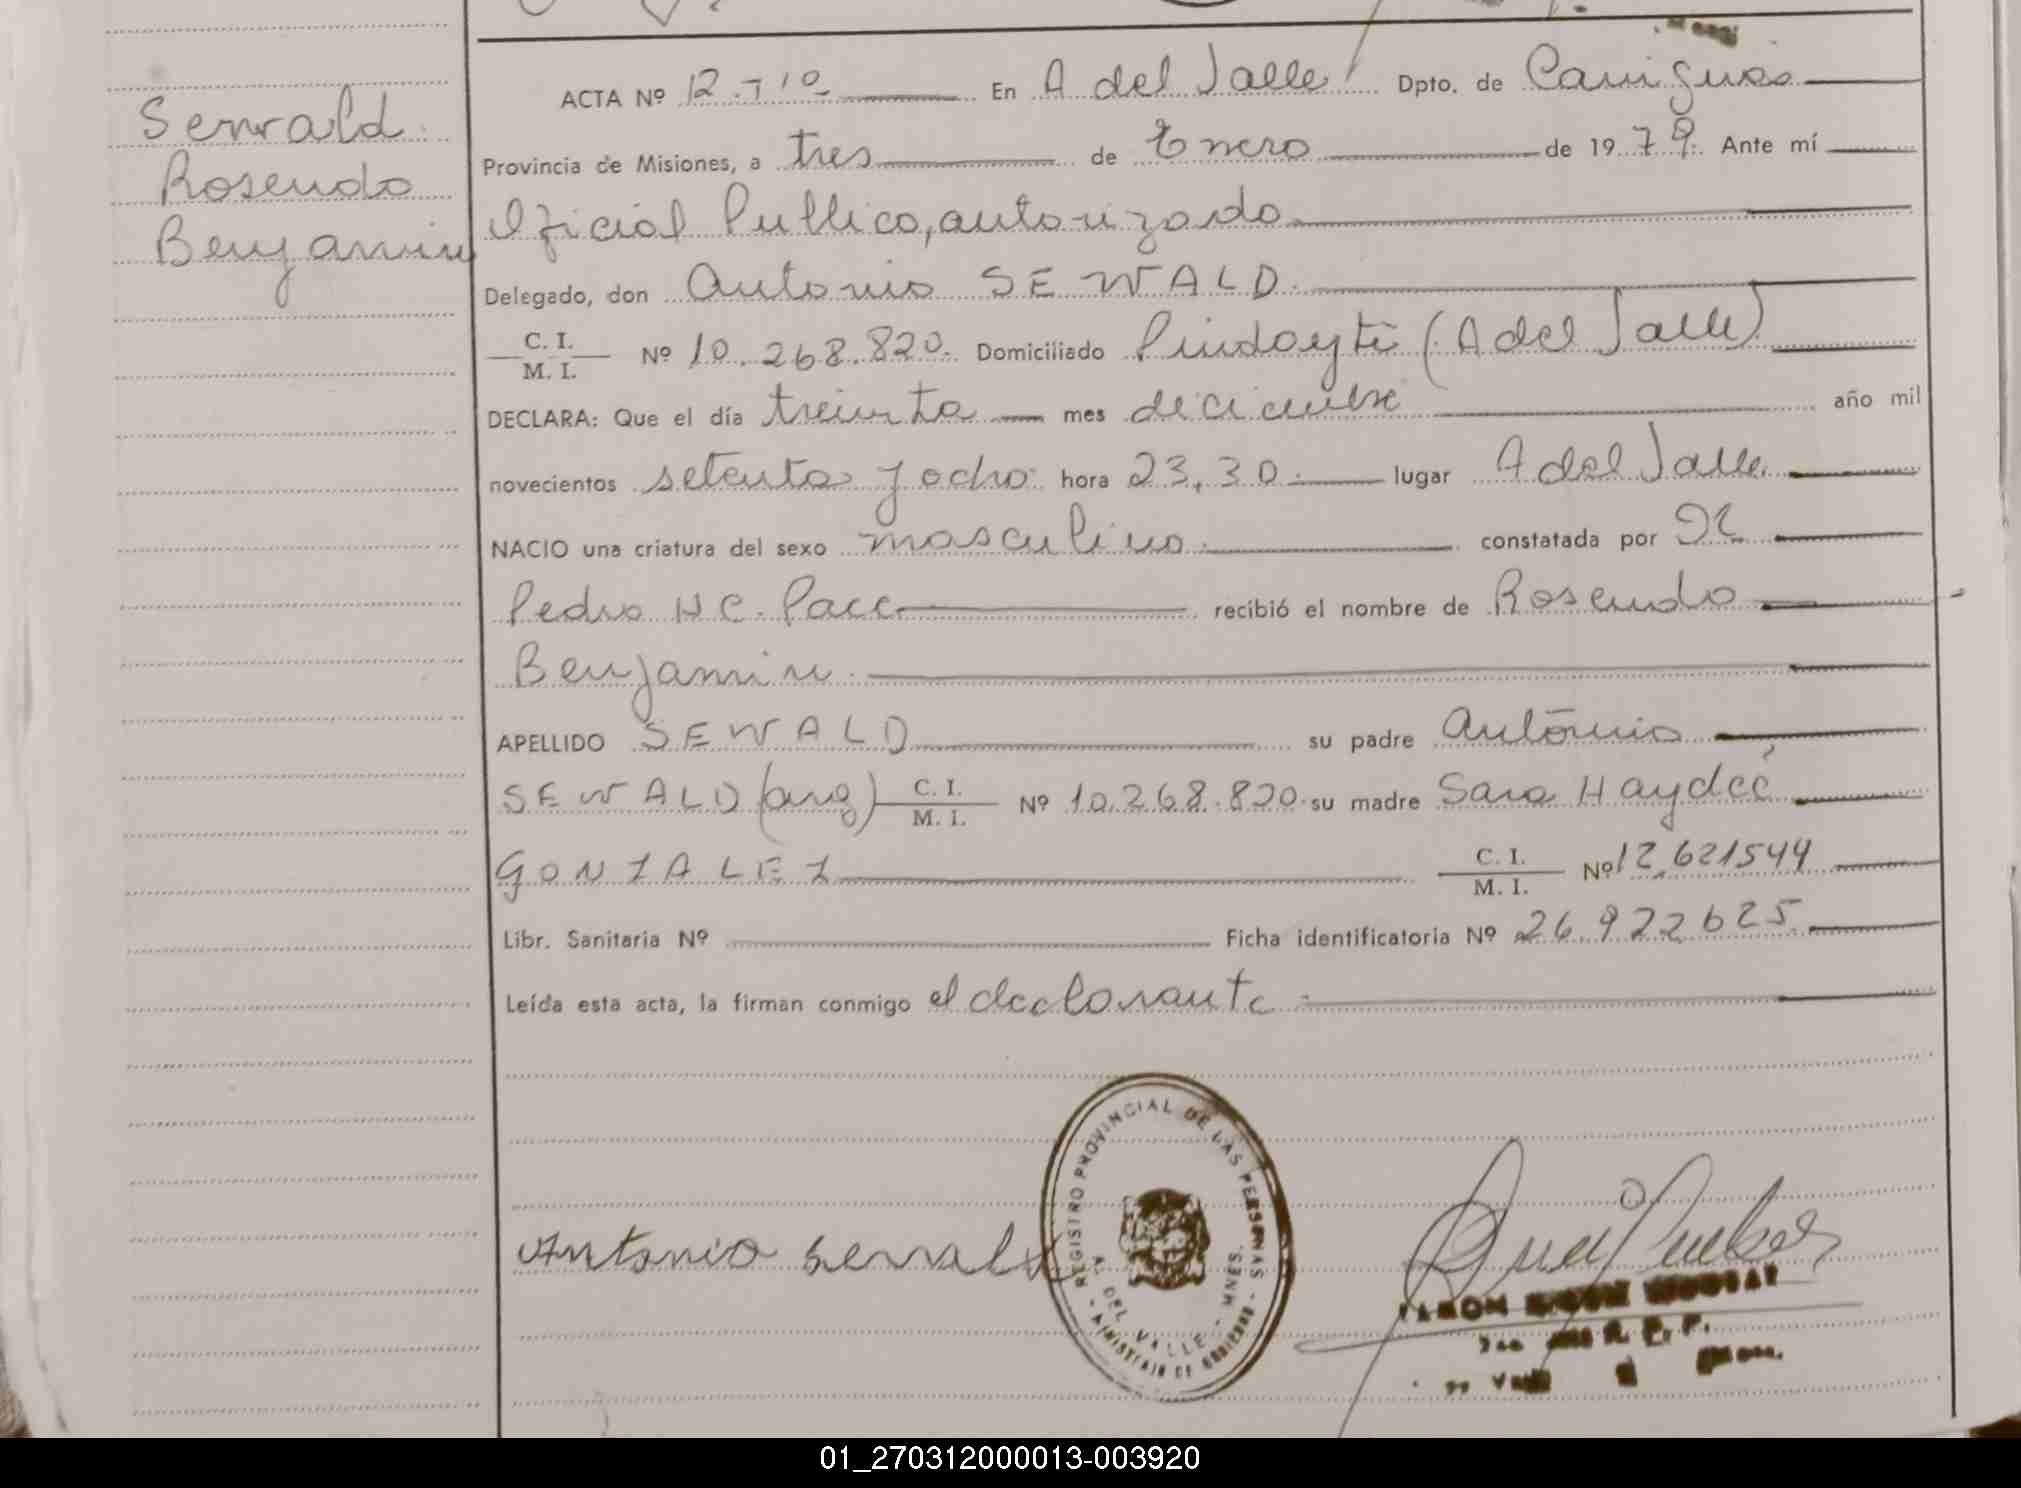 Sewald
Rosendo
Benjamin
ACTA Nº 12 - Tº 1º En A del Valle Dpto. de Cainguas
Provincia de Misiones, a tres de Enero de 1979. Ante mí
Oficial Publico, autorizado
Delegado, don Antonio SEWALD.
C. I.
M. I. Nº 10.268.820. Domiciliado Pindayti (A del Valle)
DECLARA: Que el día treinta mes diciembre año mil
novecientos setenta y ocho hora 23,30. lugar A del Valle.
NACIO una criatura del sexo masculino. constatada por
Pedro H C. Pace recibió el nombre de Rosendo
Benjamin.
APELLIDO SEWALD su padre António
SEWALD (arg) C. I.
M. I. Nº 10.268.820. su madre Sara Haydeé
GONZALEZ C. I.
M. I. Nº 12.621544
Libr. Sanitaria Nº Ficha identificatoria Nº 26.922625.
Leída esta acta, la firman conmigo el declarante
Antonio sewald
REGISTRO PROVINCIAL DE LAS PERSONAS
A. DEL VALLE - MNES.
- MINISTERIO DE GOBIERNO -
01_270312000013-003920